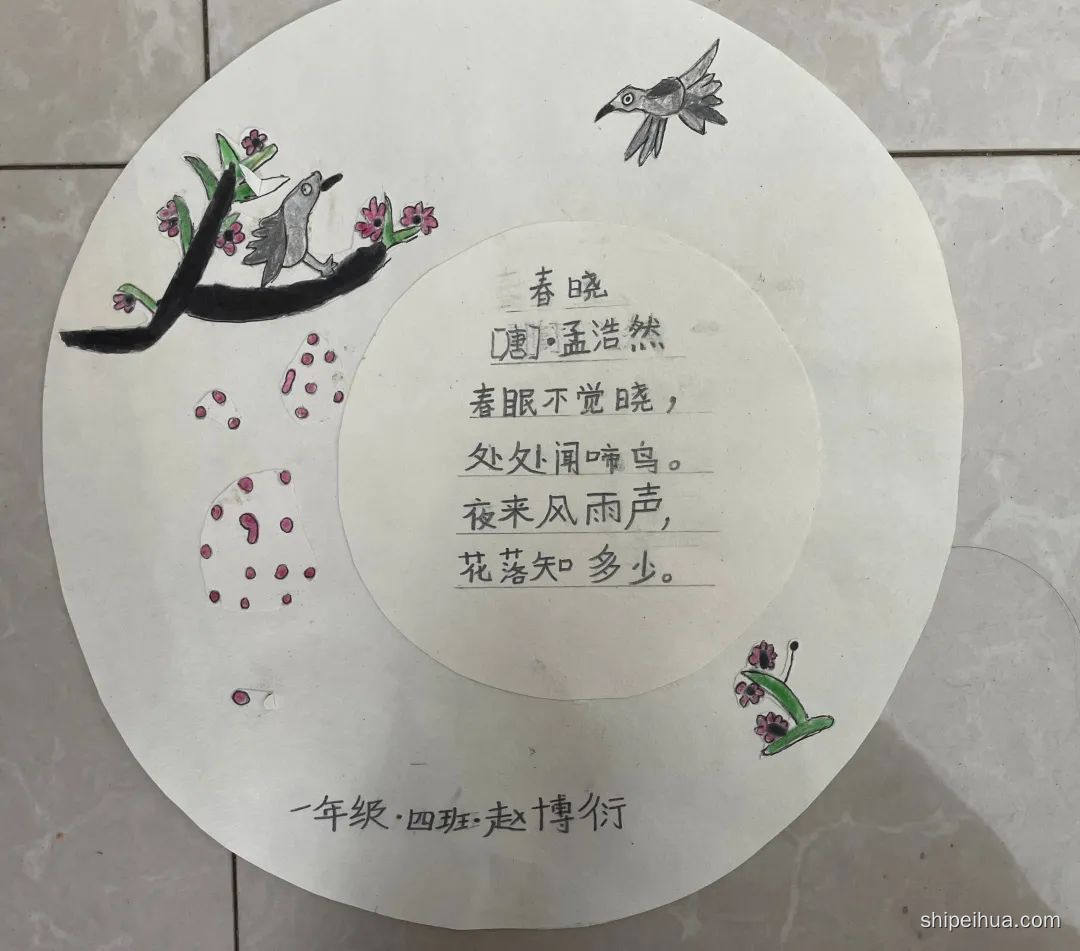 春晓
[唐]·孟浩然
春眠不觉晓，
处处闻啼鸟。
夜来风雨声，
花落知多少。
一年级·四班·赵博衍
shipeihua.com